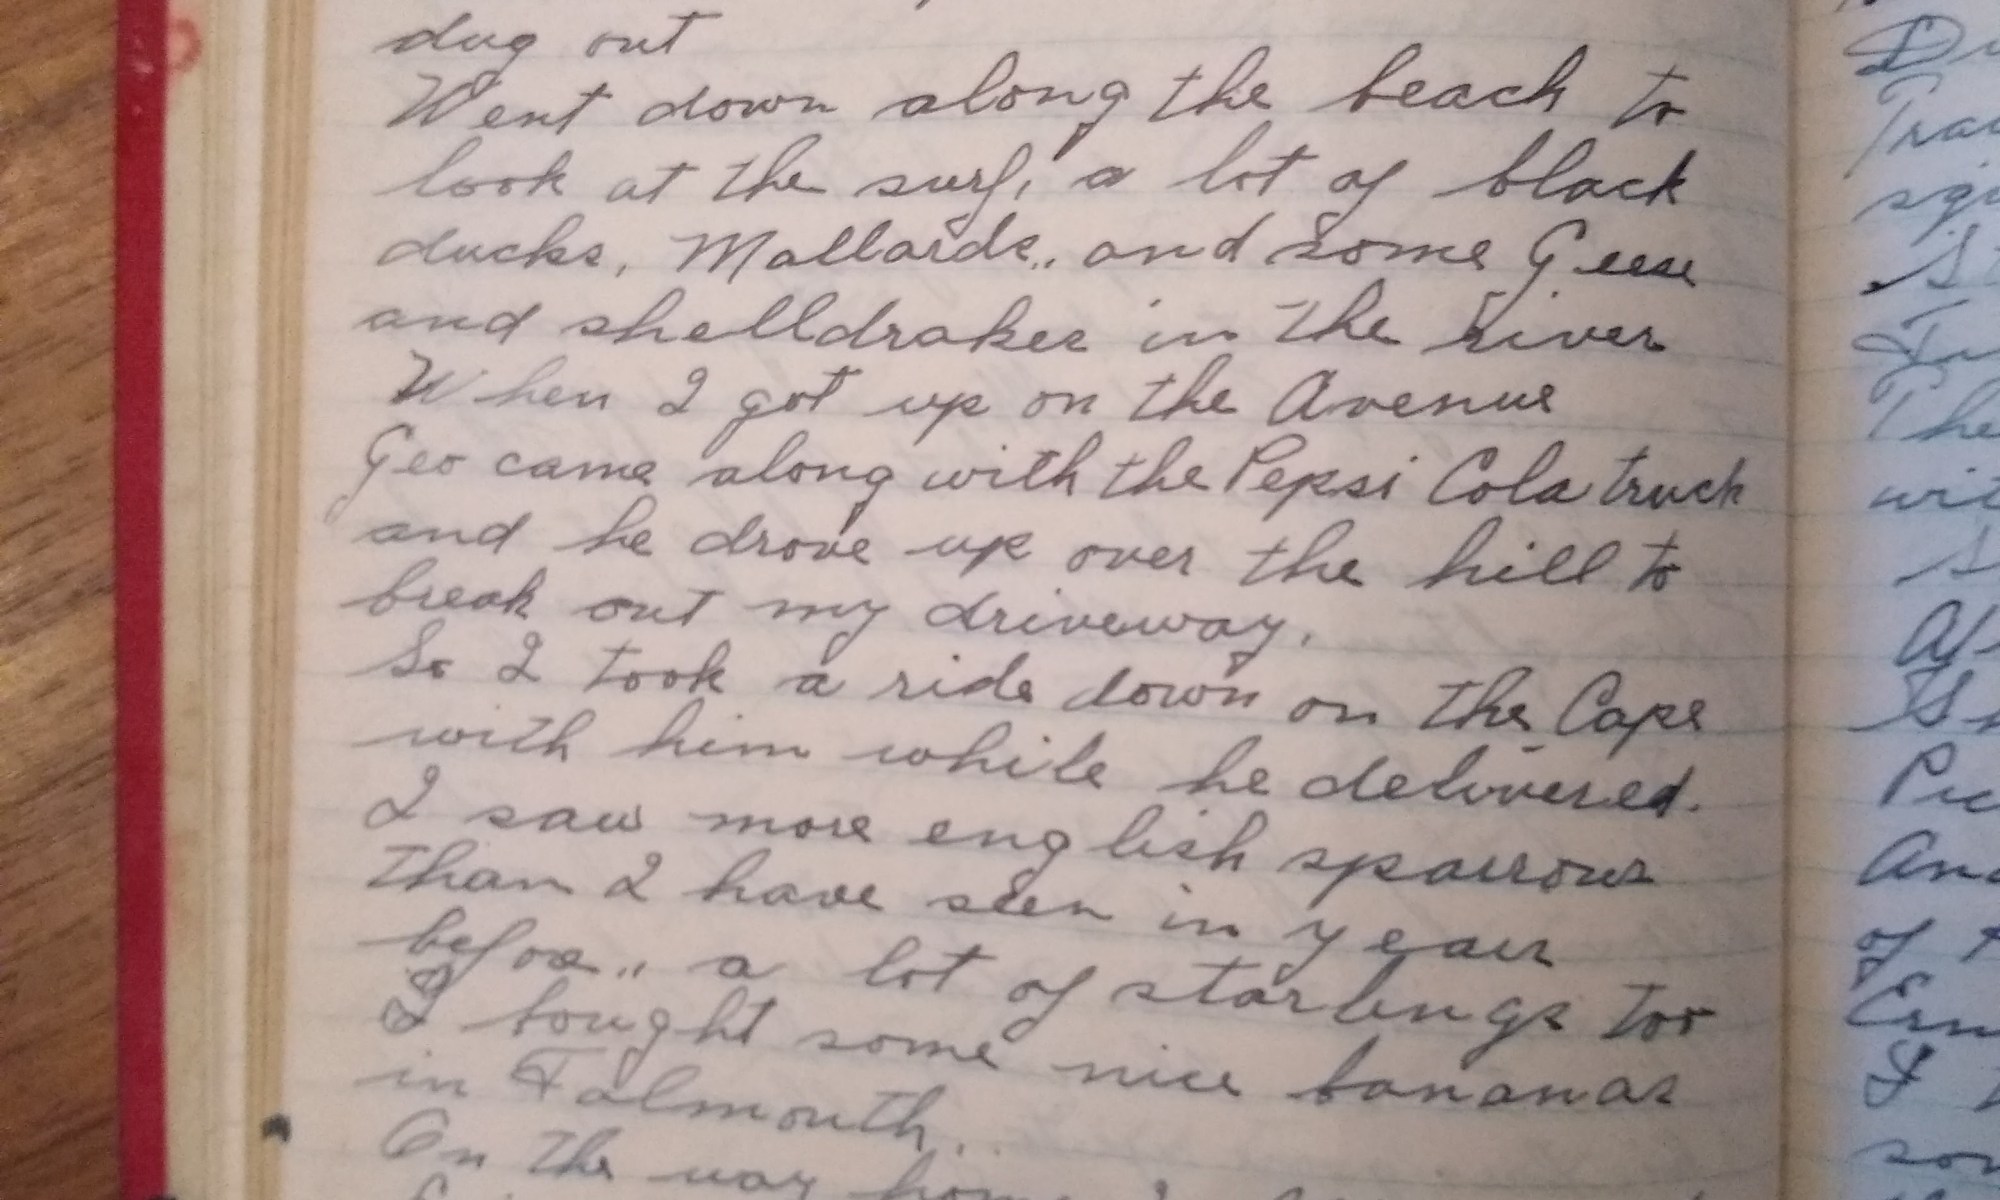 dug out
Went down along the beach to
look at the surf, a lot of black
ducks, Mallards,, and some Geese
and shelldrakes in the river
When I got up on the Avenue
Geo came along with the Pepsi Cola truck
and he drove up over the hill to
break out my driveway.
So I took a ride down on the Cape
with him while he delivered.
I saw more english sparrows
than I have seen in years
before,, a lot of starlings too
I bought some nice bananas
in Falmouth.
On the way home I
The
of
I